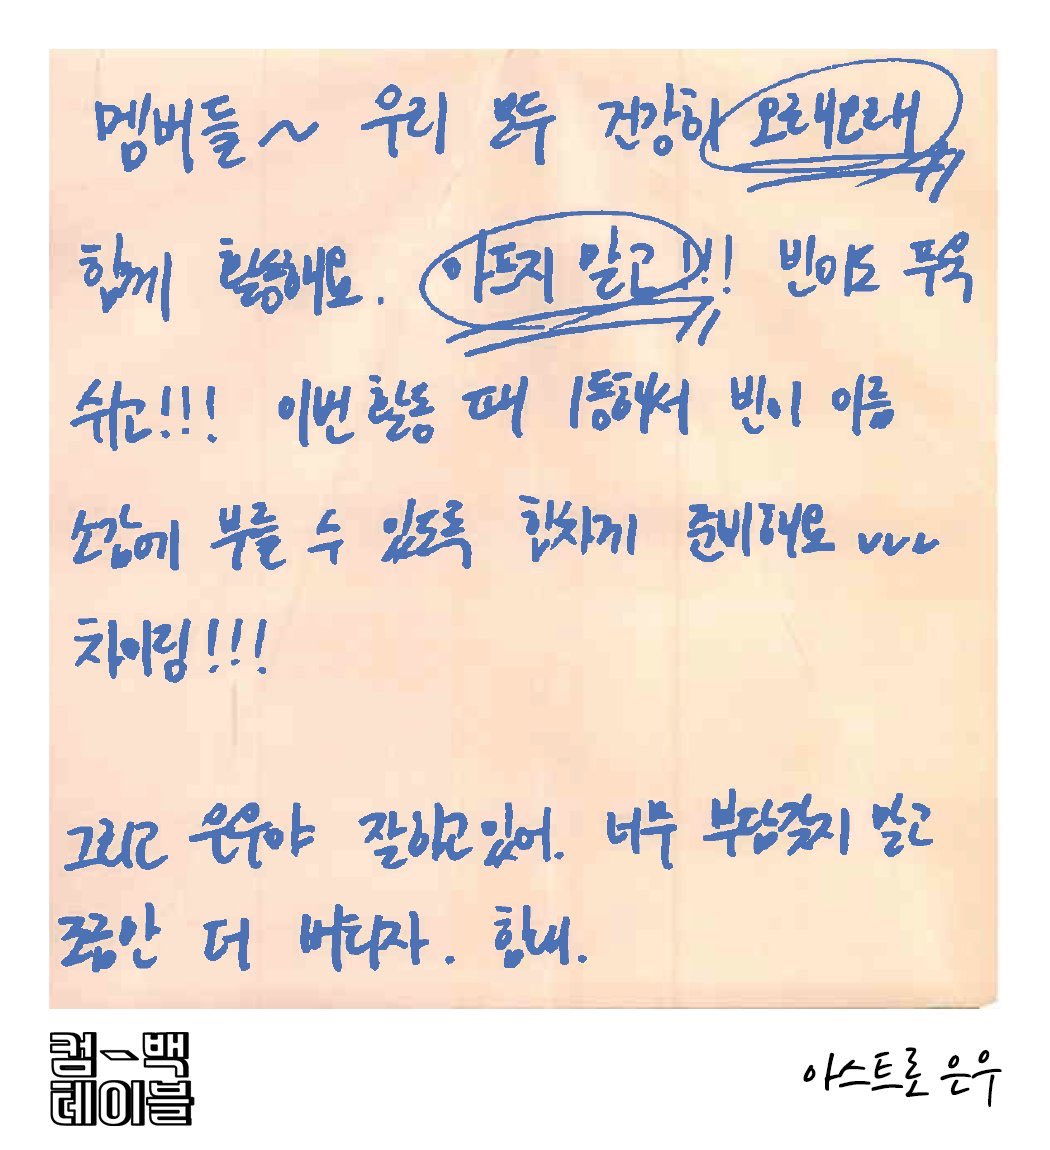 멤버들~ 우리 모두 건강히 오래오래
함께 활동해요. 아프지 말고!!! 빈이도 푸욱
쉬고!!! 이번 활동 때 1등해서 빈이 이름
소감에 부를 수 있도록 힘차게 준비해요
차이팅!!!
그리고 은우야 잘하고 있어. 너무 부담갖지 말고
조금만 더 버티자. 힘내.
컴백
테이블
아스트로 은우